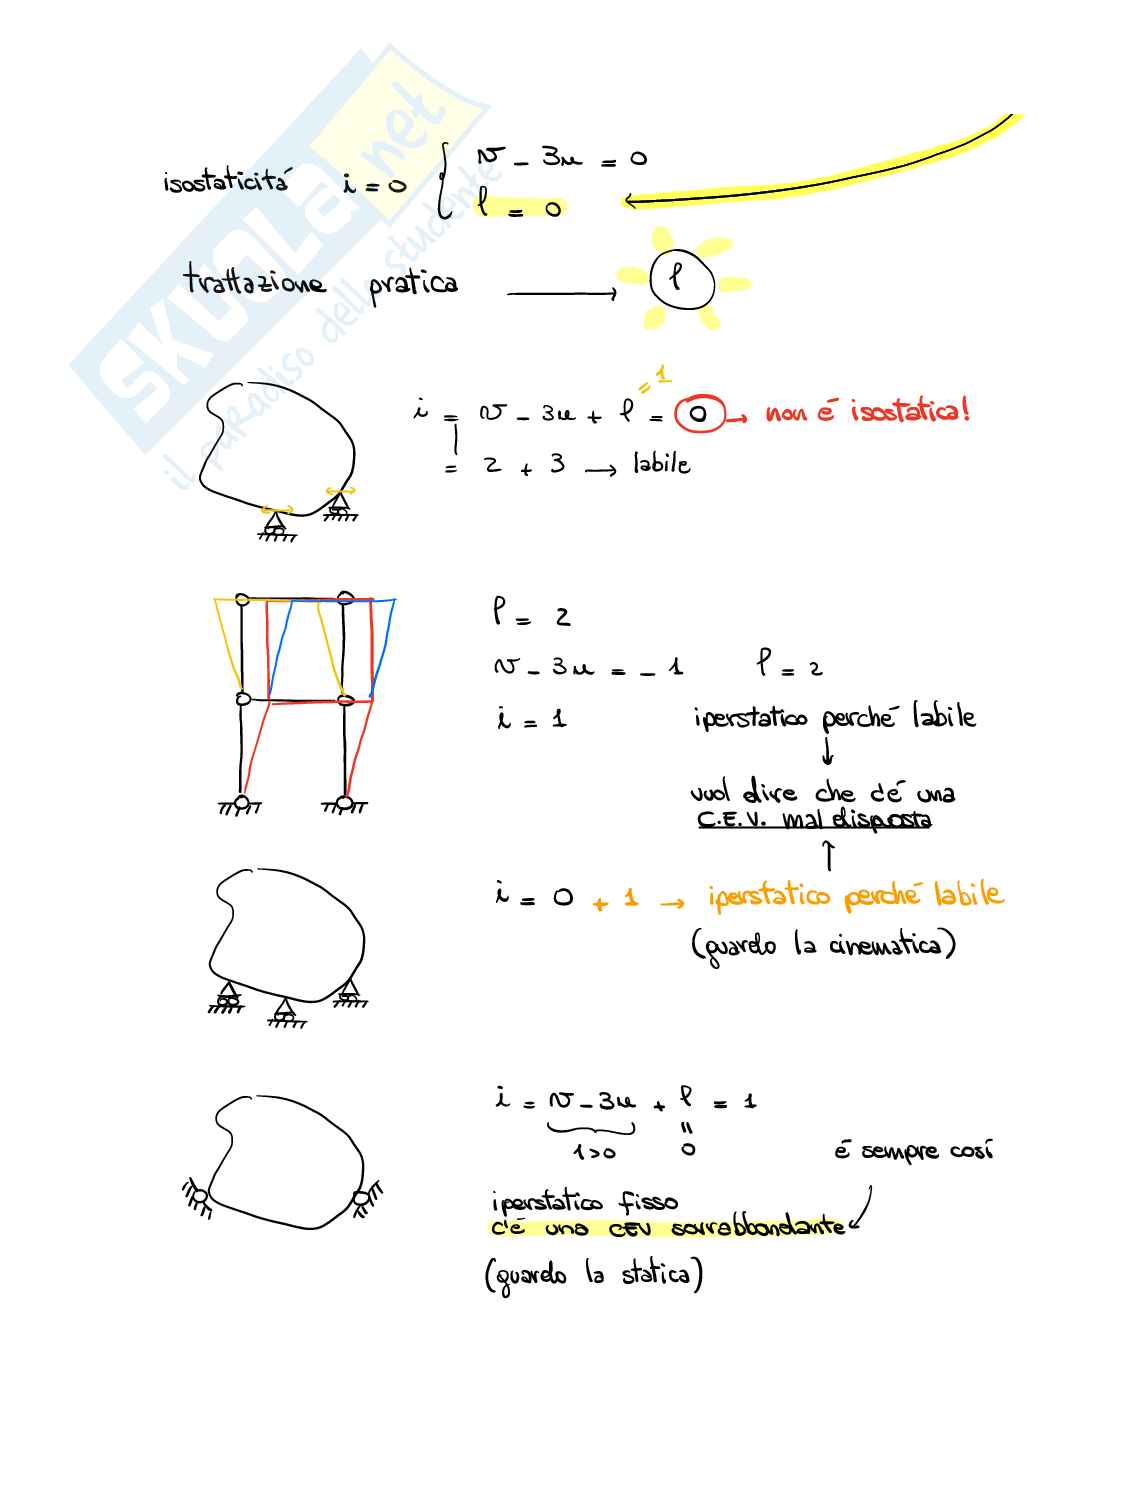 isostaticitá i = 0 { v - 3u = 0
l = 0
trattazione pratica ⟶ l
= 1
i = v - 3u + l = 0 → non é isostatica!
= 2 + 3 → labile
l = 2
v - 3u = - 1 l = 2
i = 1 iperstatico perché labile
↓
vuol dire che c'é una
C.E.V. mal disposta
↑
i = 0 + 1 → iperstatico perché labile
(guardo la cinematica)
i = v - 3u + l = 1
1 > 0 0 é sempre cosí
iperstatico fisso
c'é una CEV sovrabbondante
(guardo la statica)
SKUOLA.net
il paradiso dello studente